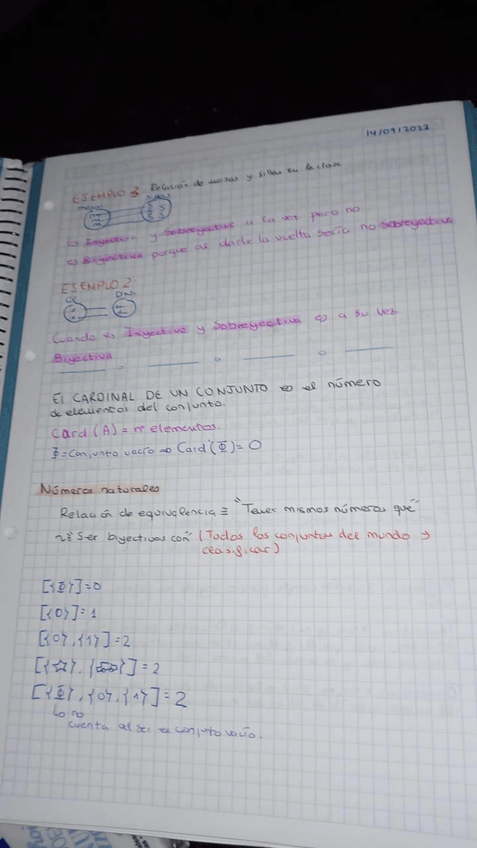 14/09/2022
EJEMPLO 3: Relación de mesas y sillas en la clase
Es Inyectiva y Sobreyectiva a la vez pero no
es Biyectiva porque al darle la vuelta sería no sobreyectiva
EJEMPLO 2:
DNI
Cuando es Inyectiva y Sobreyectiva es a su vez
Biyectiva
El CARDINAL DE UN CONJUNTO es el número
de elementos del conjunto.
Card (A) = nº elementos.
Φ = Conjunto vacío ⇒ Card (Φ) = 0
Números naturales
Relación de equivalencia ≡ "Tener mismos números que"
Ser biyectivos con" (Todos los conjuntos del mundo y
clasificar)
[{Φ}] = 0
[{0}] = 1
[{0}, {1}] = 2
[{☆}, { }] = 2
[{Φ}, {0}, {1}] = 2
Lo no
cuenta al ser el conjunto vacío.